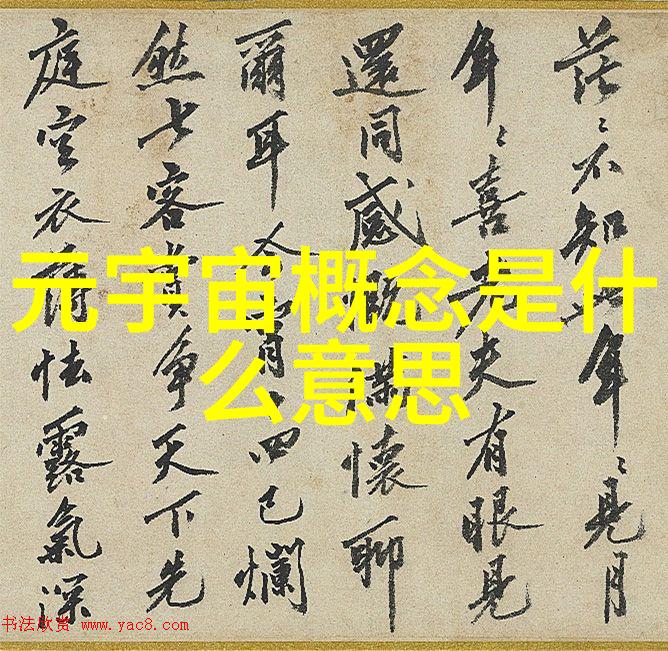 元宇宙概念是什
么意思
茫〻不知年〻見月
年〻喜夫有眼見
還同感慨懷聊
爾耳月四已爛
然七客賞爭天下先
庭空衣薄怯露氣深
书法欣赏 www.yac8.com